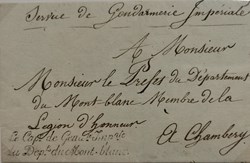 Service de Gendarmerie Impériale
A Monsieur
Monsieur le Préfet du Département
du Mont-blanc Membre de la
Légion d'honneur
A Chambery
Le Capne de Gendie Impale
du Dépt. du Mont-blanc